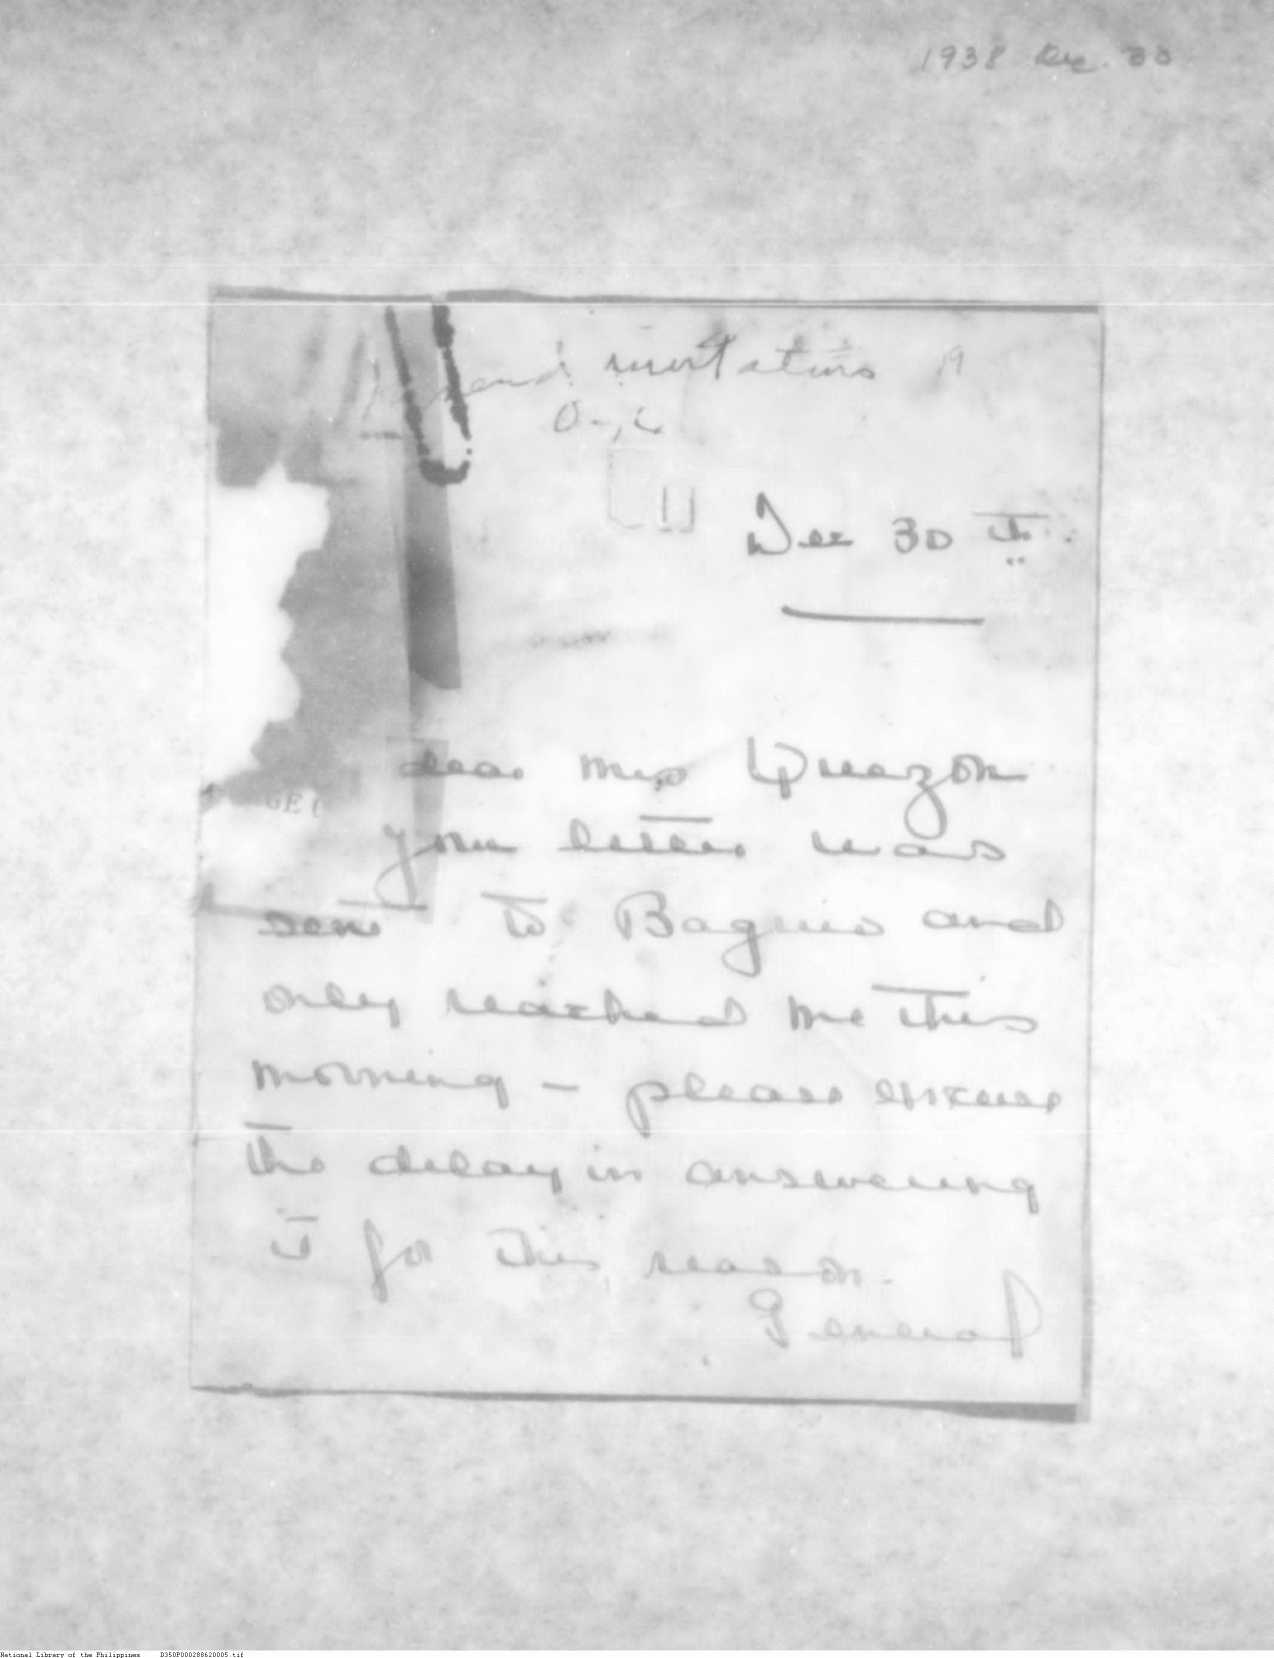 1938 Dec. 30
Dec 30th.
dear Mrs Quezon
your letter was
sent to Baguio and
only reached me this
morning – please excuse
the delay in answering
it for this reason.
General
GE
National Library of the Philippines D350P000288620005.tif